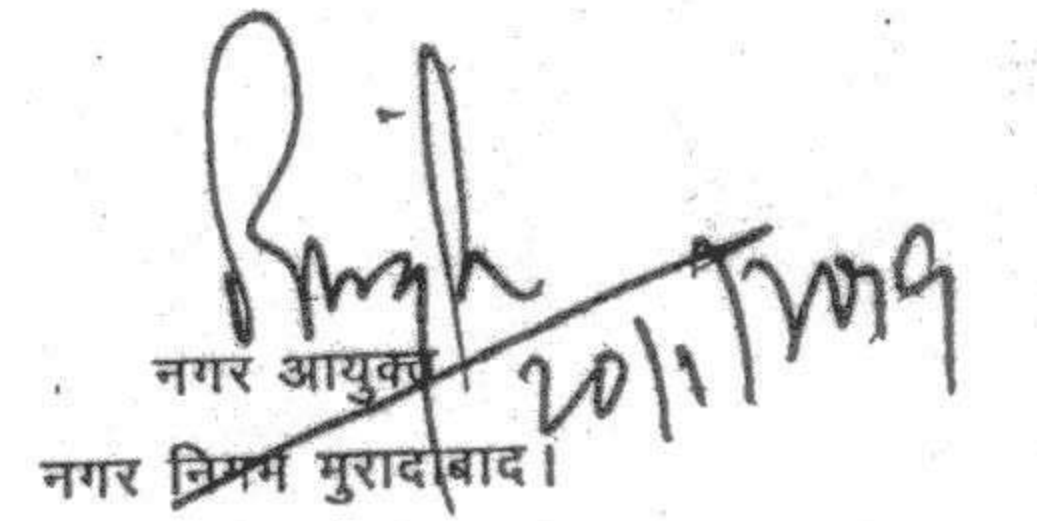 20/1/2019
नगर आयुक्त
नगर निगम मुरादाबाद।